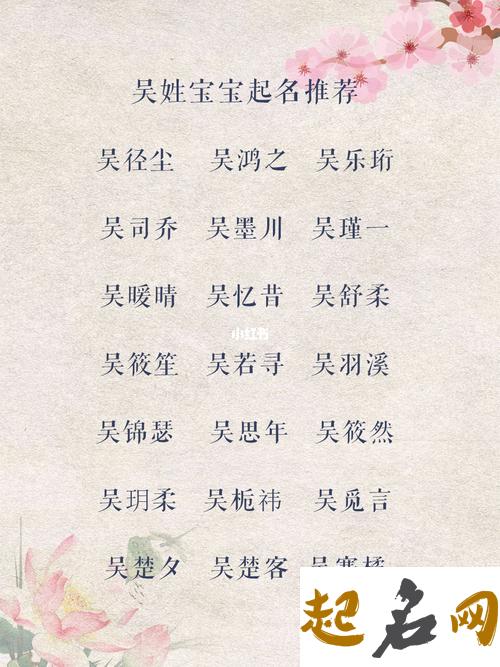 吴姓宝宝起名推荐
吴径尘 吴鸿之 吴乐珩
吴司乔 吴墨川 吴瑾一
吴暖晴 吴忆昔 吴舒柔
小红书
吴筱笙 吴若寻 吴羽溪
吴锦瑟 吴思年 吴筱然
吴玥柔 吴栀祎 吴觅言
吴楚夕 吴楚客 吴
起名网